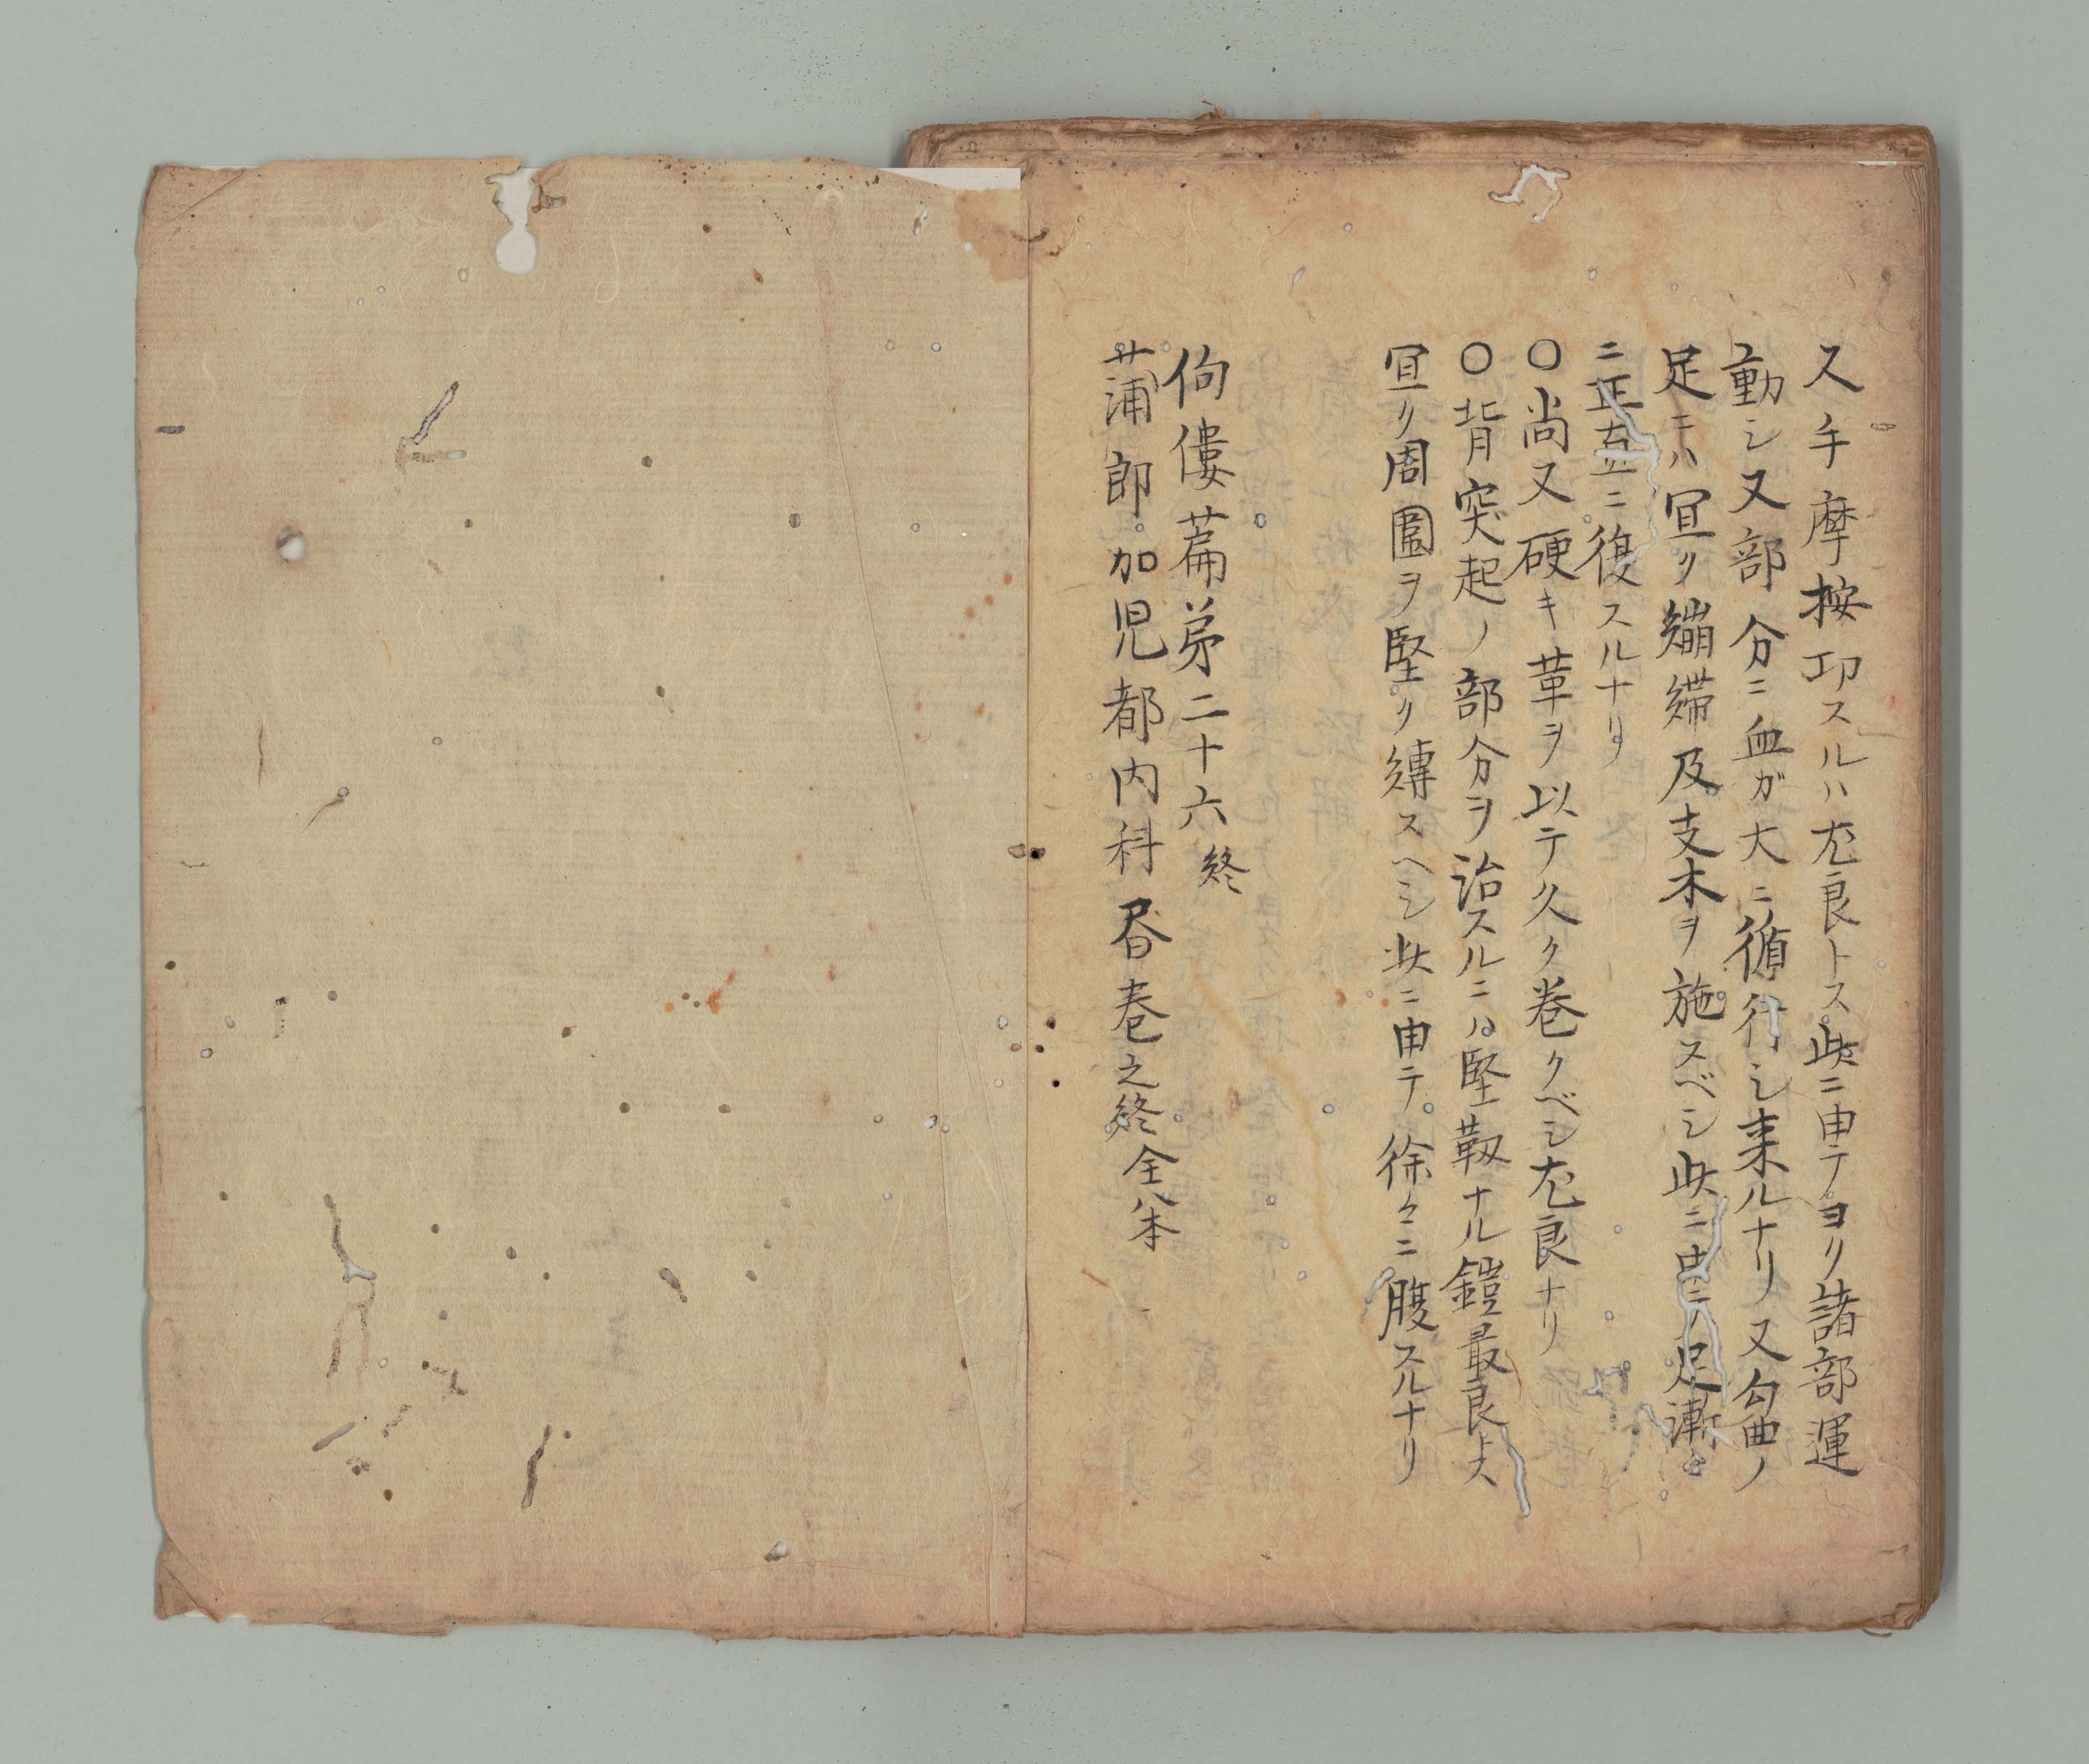 ス手摩按印スルハ尤良トス此ニ由テヨリ諸部運
動シ又部分ニ血ガ大ニ循行シ来ルナリ又勾曲ノ
足ニハ冝ク繃帯及支木ヲ施スベシ此ニ由ニノ足漸々
ニ正直ニ復スルナリ
〇尚又硬キ革ヲ以テ久ク巻クベシ尤良ナリ
〇背突起ノ部分ヲ治スルニハ堅靱ナル鎧最良トス
冝ク周圍ヲ堅ク縛スヘシ此ニ由テ徐々ニ腹スルナリ
佝僂萹第二十六終
蒲郎加児都内科 巻之終全八本